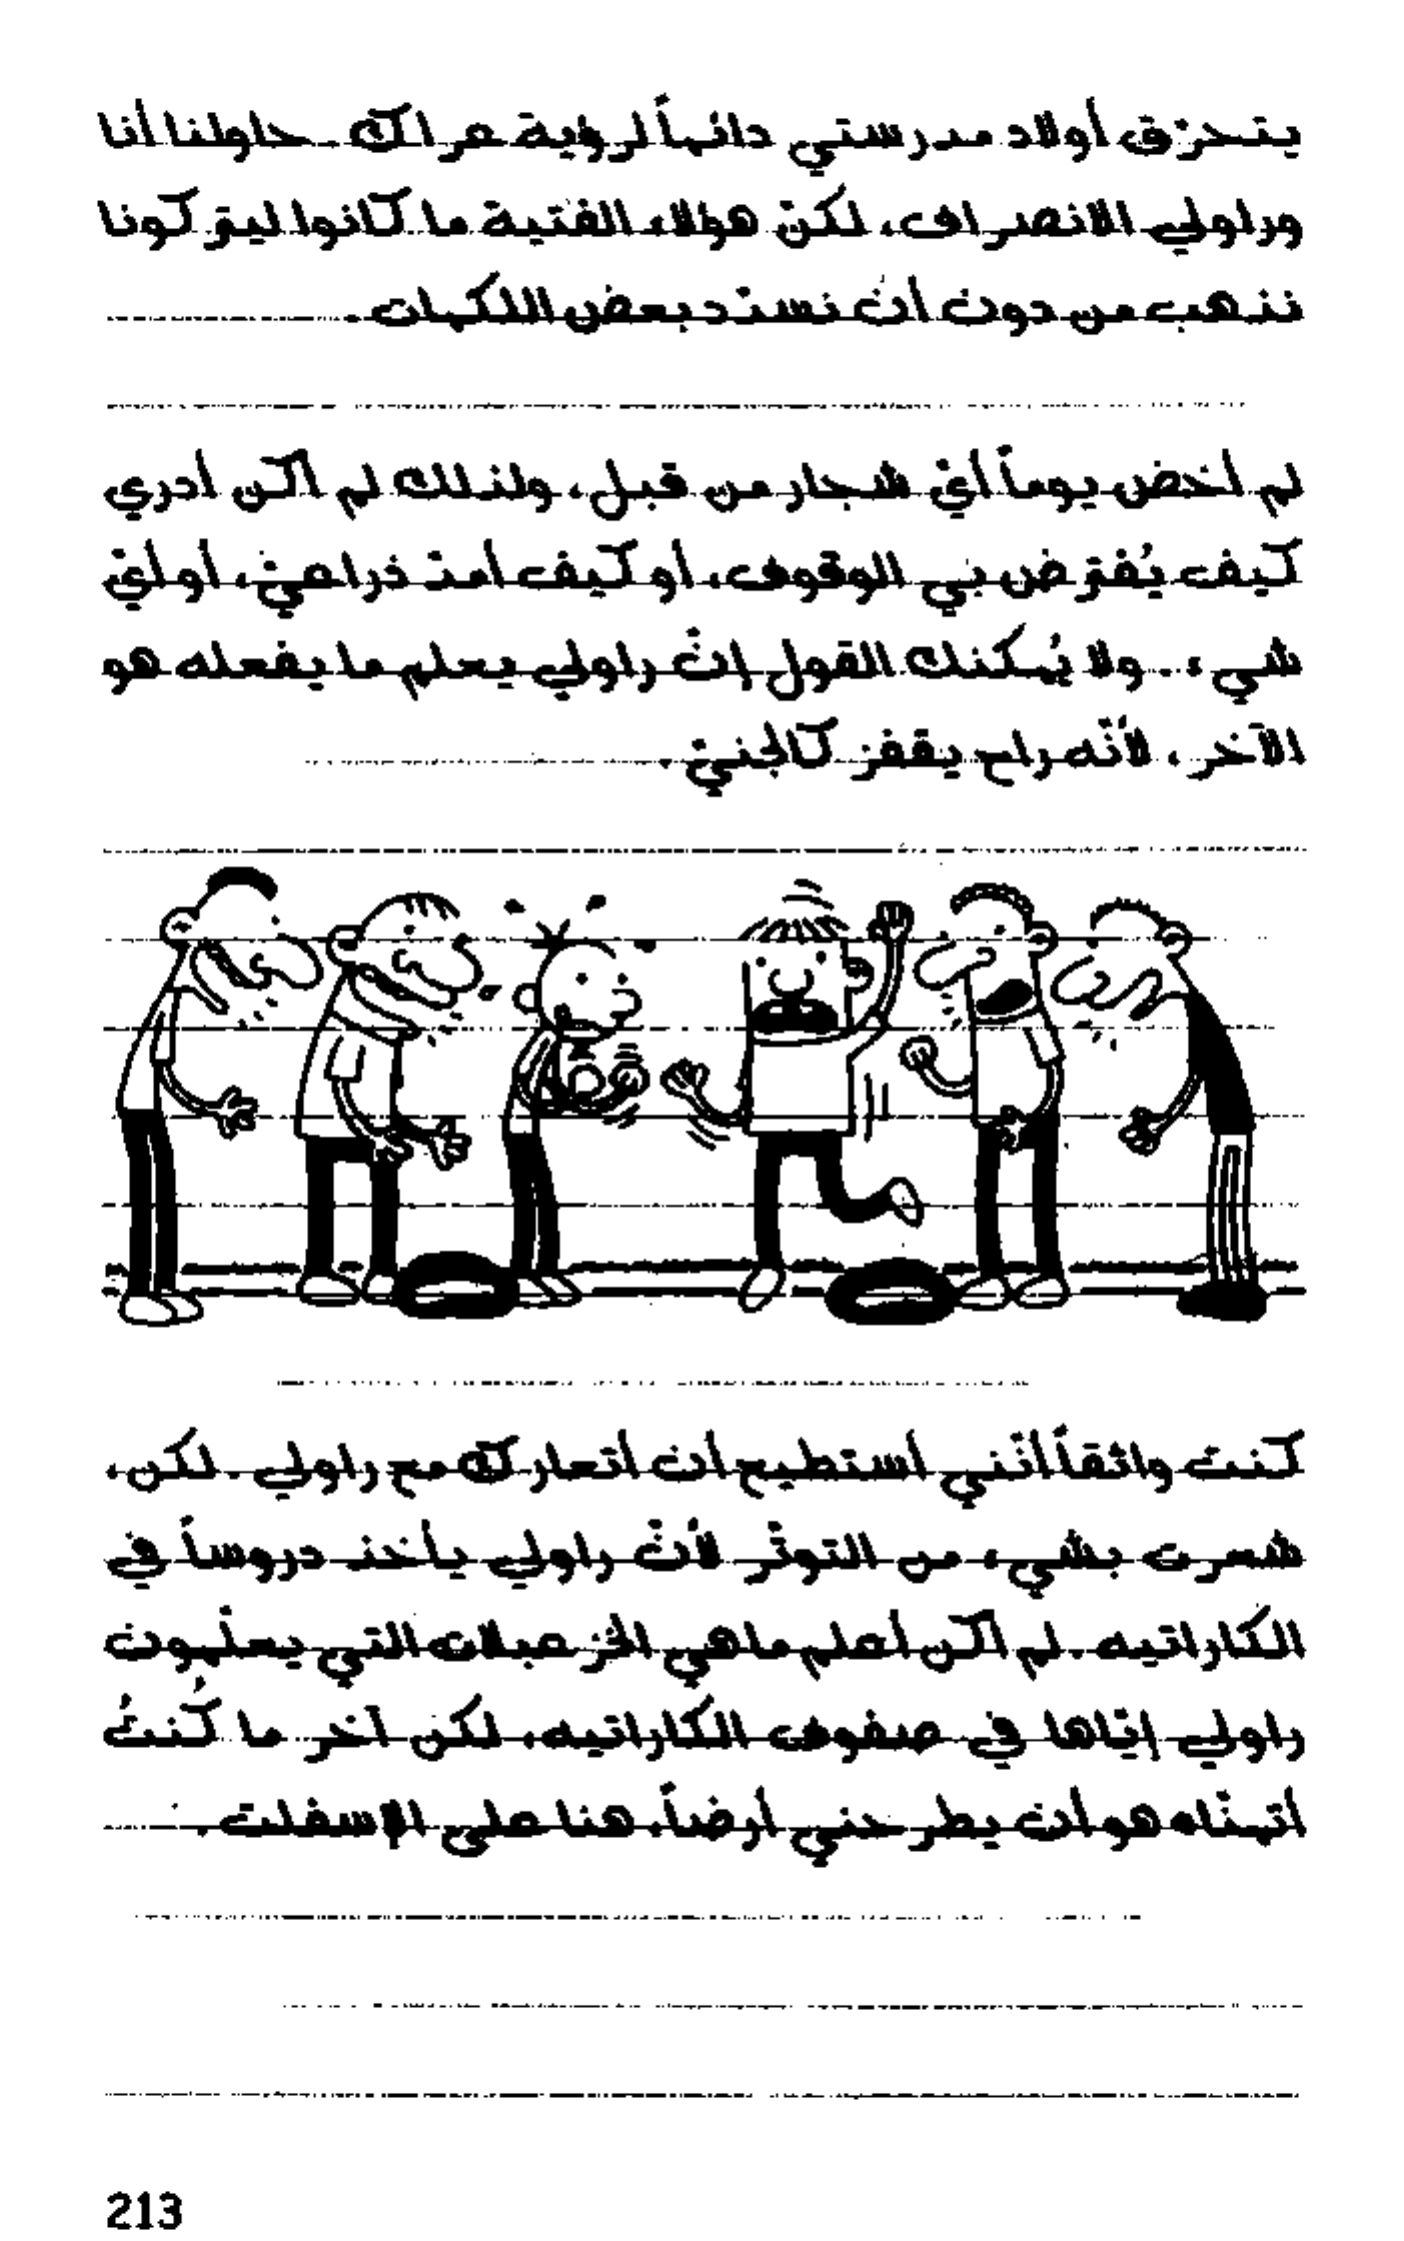 يتحرّق أولاد مدرستي دائماً لرؤية عراك. حاولنا أنا
وراولي الانصراف، لكنّ هؤلاء الفتية ما كانوا ليتركونا
نذهب من دون أن نسدّد بعض اللكمات.
لم أخض يوماً أيّ شجار من قبل، ولذلك لم أكن أدري
كيف يُفترض بي الوقوف، أو كيف أمدّ ذراعيّ، أو أيّ
شيء. ولا يُمكنك القول إنّ راولي يعلم ما يفعله هو
الآخر، لأنّه راح يقفز كالجنيّ.
كنت واثقاً أنّني أستطيع أن أتعارك مع راولي. لكن،
شعرت بشيء من التوتّر لأنّ راولي يأخذ دروساً في
الكاراتيه. لم أكن أعلم ما هي الخزعبلات التي يعلّمون
راولي إيّاها في صفوف الكاراتيه، لكن آخر ما كُنتُ
أتمنّاه هو أن يطرحني أرضاً، هنا على الإسفلت.
213